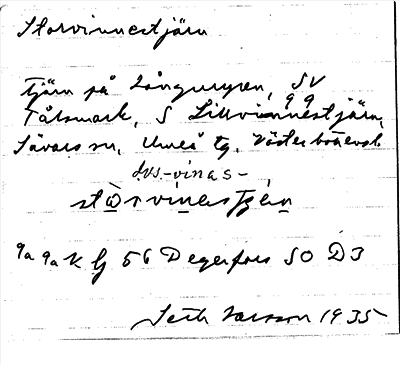 Storvinnestjärn
Tjärn på Långmyren, SV
Tålsmark, S Lillvinnestjärn,
Sävars sn, Umeå tg. Västerbottensl.
dvs. -vinas-
stòrvinestjẹn
9a 9a K G 56 Degerfors SO D3
Seth Larsson 1935